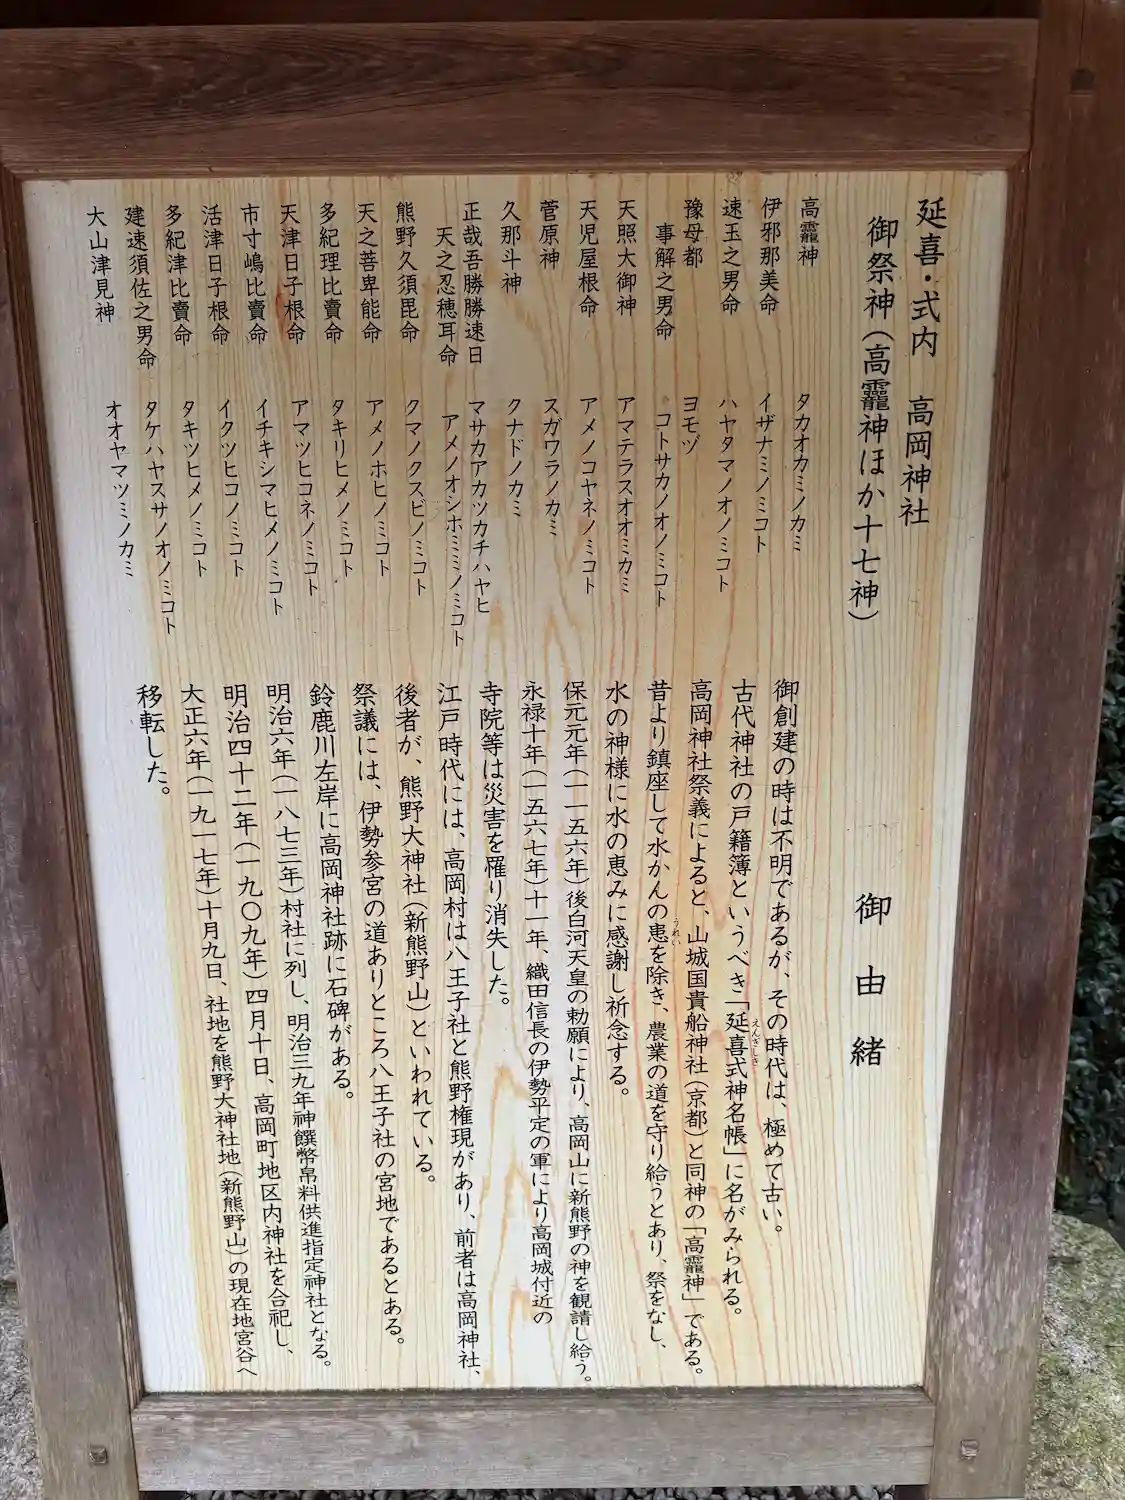 延喜・式内　高岡神社
御祭神（高龗神ほか十七神）
高龗神　タカオカミノカミ
伊邪那美命　イザナミノミコト
速玉之男命　ハヤタマノオノミコト
豫母都　ヨモヅ
事解之男命　コトサカノオノミコト
天照大御神　アマテラスオオミカミ
天児屋根命　アメノコヤネノミコト
菅原神　スガワラノカミ
久那斗神　クナドノカミ
正哉吾勝勝速日　マサカアカツカチハヤヒ
天之忍穂耳命　アメノオシホミミノミコト
熊野久須毘命　クマノクスビノミコト
天之菩卑能命　アメノホヒノミコト
多紀理比賣命　タキリヒメノミコト
天津日子根命　アマツヒコネノミコト
市寸嶋比賣命　イチキシマヒメノミコト
活津日子根命　イクツヒコノミコト
多紀津比賣命　タキツヒメノミコト
建速須佐之男命　タケハヤスサノオノミコト
大山津見神　オオヤマツミノカミ
御由緒
御創建の時は不明であるが、その時代は、極めて古い。
古代神社の戸籍簿というべき「延喜式神名帳」に名がみられる。
えんぎしき
高岡神社祭義によると、山城国貴船神社（京都）と同神の「高龗神」である。
昔より鎮座して水かんの患を除き、農業の道を守り給うとあり、祭をなし、
うれい
水の神様に水の恵みに感謝し祈念する。
保元元年（一一五六年）後白河天皇の勅願により、高岡山に新熊野の神を観請し給う。
永禄十年（一五六七年）十一年、織田信長の伊勢平定の軍により高岡城付近の
寺院等は災害を罹り消失した。
江戸時代には、高岡村は八王子社と熊野権現があり、前者は高岡神社、
後者が、熊野大神社（新熊野山）といわれている。
祭議には、伊勢参宮の道ありところ八王子社の宮地であるとある。
鈴鹿川左岸に高岡神社跡に石碑がある。
明治六年（一八七三年）村社に列し、明治三九年神饌幣帛料供進指定神社となる。
明治四十二年（一九〇九年）四月十日、高岡町地区内神社を合祀し、
大正六年（一九一七年）十月九日、社地を熊野大神社地（新熊野山）の現在地宮谷へ
移転した。